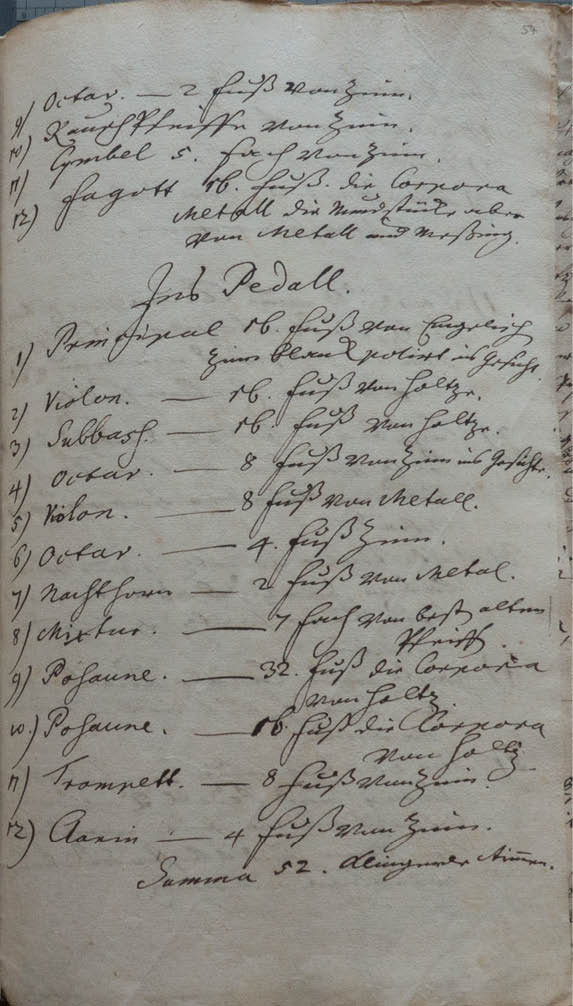 54
9) Octav. — 2 Fuß von Zinn.
10) Rausch Pfeiffe von Zinn.
11) Cymbel 5. fach von Zinn.
12) Fagott 16. Fuß. die Corpora
Metall die Mundstücke aber
von Metall und Meßing.
Ins Pedall.
1) Principal 16. Fuß von Engelisch
Zinn blanck polirt ins Gesicht.
2) Violon. — 16. Fuß von Holtze.
3) Subbass. — 16. Fuß von Holtze.
4) Octav. — 8 Fuß von Zinn ins Gesichte.
5) Violon. — 8 Fuß von Metall.
6) Octav. — 4. Fuß Zinn.
7) Nachthorn — 2 Fuß von Metal.
8) Mixtur. — 7 fach von alten
Pfeiff.
9) Posaune. — 32. Fuß die Corpora
von Holtz.
10.) Posaune. — 16. Fuß die Corpora
von Holtz
11) Trompett. — 8 Fuß von Zinn.
12) Clarin — 4 Fuß von Zinn.
Summa 52. klingende Stimmen.